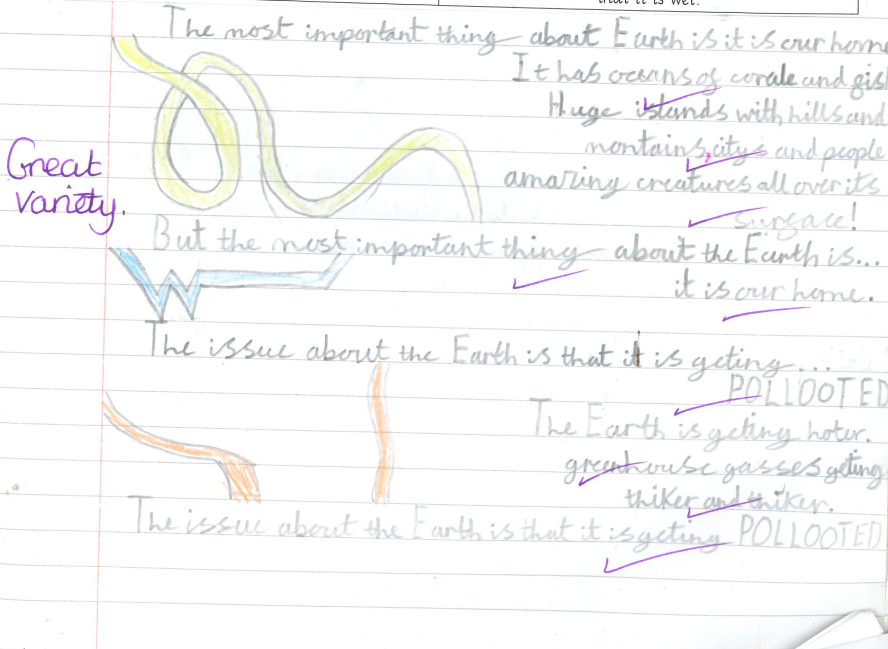 that it is wet.
The most important thing about Earth is it is our home
It has oceans of corale and fish
Huge islands with hills and
montains, citys and people
amazing creatures all over its
surface!
Great
variety.
But the most important thing about the Earth is...
it is our home.
The issue about the Earth is that it is geting...
POLLOOTED
The Earth is geting hoter.
greenhouse gasses geting
thiker and thiker.
The issue about the Earth is that it is geting POLLOOTED